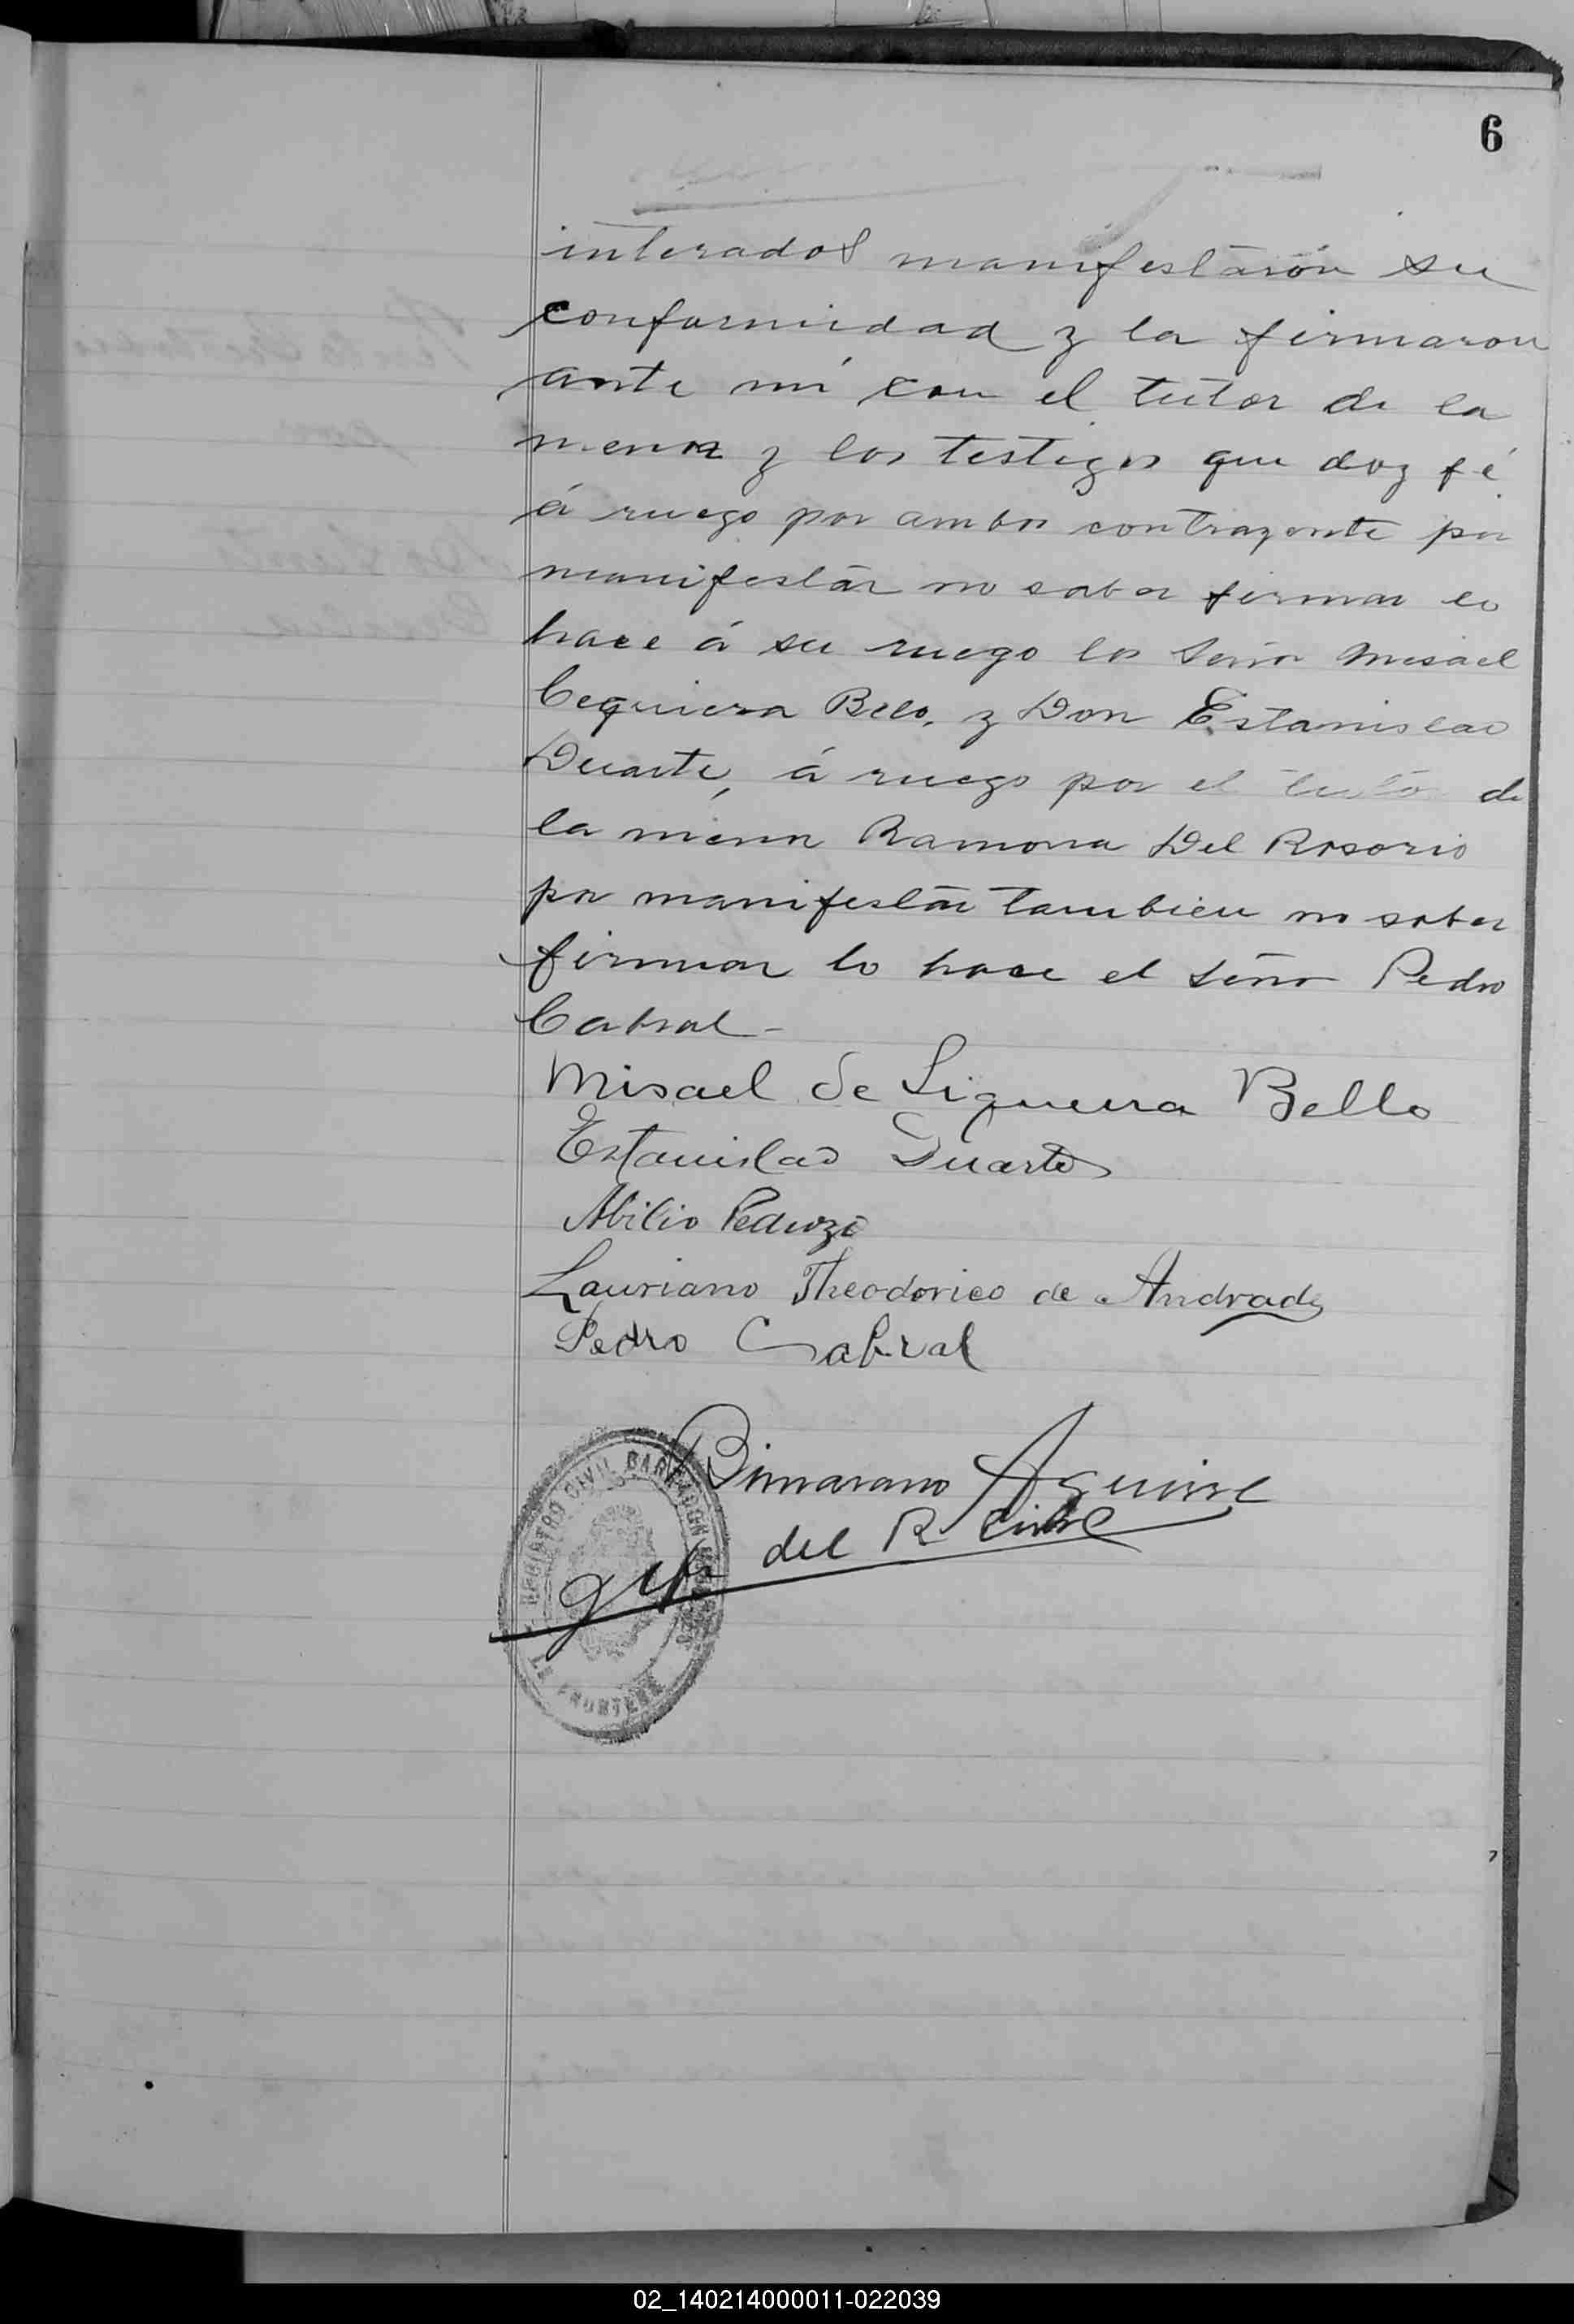 6
interados manifestarón su
conformidad y la firmaron
ante mí con el tutor de la
menor y los testigos que doy fé
á ruego por ambos contrayente por
manifestár no saber firmar lo
hace á su ruego los Señor Misael
Cequiera Belo, y Don Estanislao
Duarte, á ruego por el tutór de
la menor Ramona Del Rosorio
por manifestár tambien no saber
firmar lo hace el Señor Pedro
Cabral-
Misael de Siqueira Bello
Estanislao Duarte
Abilio Pedrozo
Lauriano Theodorico de Andrade
Pedro Cabral
Bimarano Aguirre
gefe del R. Civil
REGISTRO CIVIL BARRACON
LA FRONTERA
02_140214000011-022039